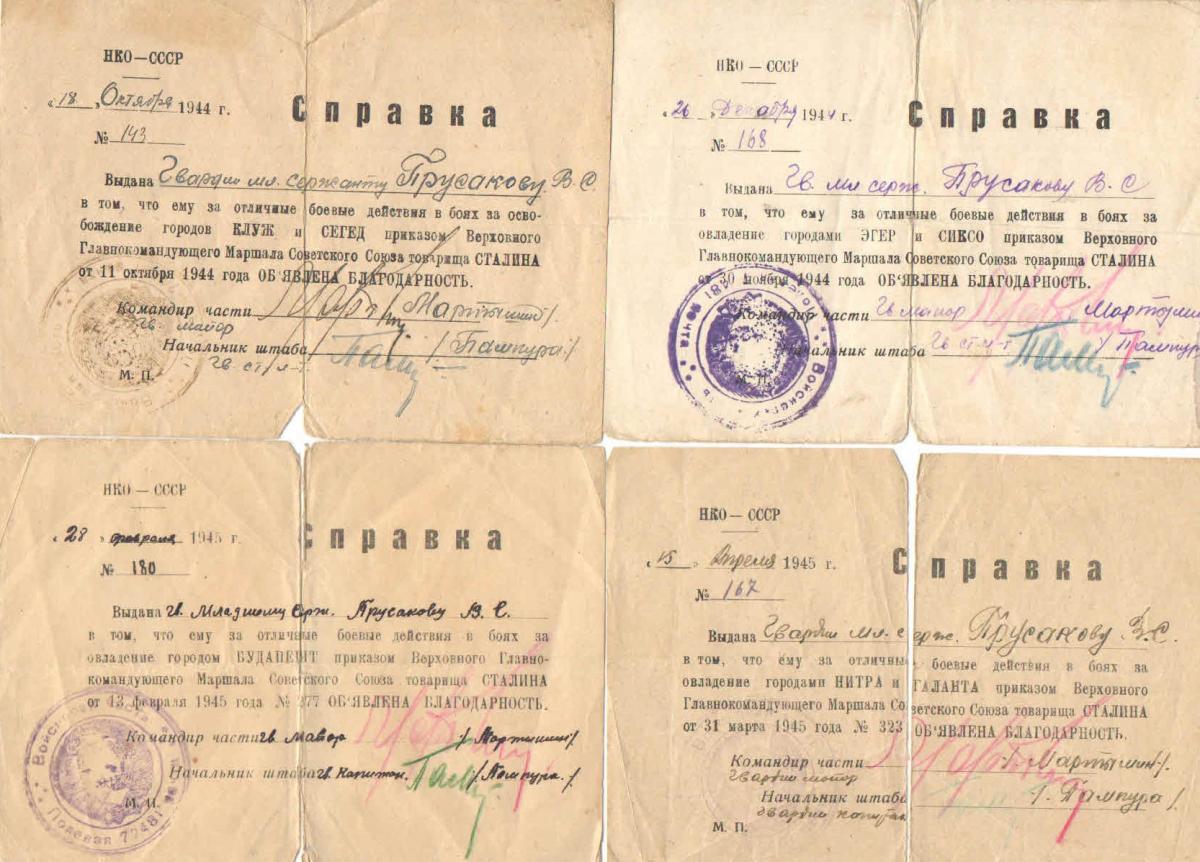 НКО — СССР
« 18 » Октября 1944 г.
Справка
№ 143
Выдана Гвардии мл. сержанту Прусакову В. С.
в том, что ему за отличные боевые действия в боях за осво-
бождение городов КЛУЖ и СЕГЕД приказом Верховного
Главнокомандующего Маршала Советского Союза товарища СТАЛИНА
от 11 октября 1944 года ОБ'ЯВЛЕНА БЛАГОДАРНОСТЬ.
Командир части /Мартынин/
Гв майор
Начальник штаба /Пампура/
Гв ст/л-т
М. П.
НКО — СССР
« 26 » Декабря 1944 г.
Справка
№ 168
Выдана Гв. мл серж. Прусакову В. С
в том, что ему за отличные боевые действия в боях за
овладение городами ЭГЕР и СИКСО приказом Верховного
Главнокомандующего Маршала Советского Союза товарища СТАЛИНА
от 30 ноября 1944 года ОБ'ЯВЛЕНА БЛАГОДАРНОСТЬ.
Командир части Гв майор Мартынин
Начальник штаба Гв ст/л-т /Пампура
М. П.
НКО — СССР
« 28 » февраля 1945 г.
Справка
№ 180
Выдана гв. Младшему серж. Прусакову В. С.
в том, что ему за отличные боевые действия в боях за
овладение городом БУДАПЕШТ приказом Верховного Главно-
командующего Маршала Советского Союза товарища СТАЛИНА
от 13 февраля 1945 года № 277 ОБ'ЯВЛЕНА БЛАГОДАРНОСТЬ.
Командир части гв майор /Мартынин/
Начальник штаба гв. капитан. /Пампура./
М. П.
Полевая 77481
НКО — СССР
« 15 » Апреля 1945 г.
Справка
№ 167
Выдана Гвардии мл. серж. Прусакову В. С.
в том, что ему за отличные боевые действия в боях за
овладение городами НИТРА и ГАЛАНТА приказом Верховного
Главнокомандующего Маршала Советского Союза товарища СТАЛИНА
от 31 марта 1945 года № 323 ОБ'ЯВЛЕНА БЛАГОДАРНОСТЬ.
Командир части /Мартынин/.
гвардии майор
Начальник штаба /. Пампура/.
гвардии капитан
М. П.